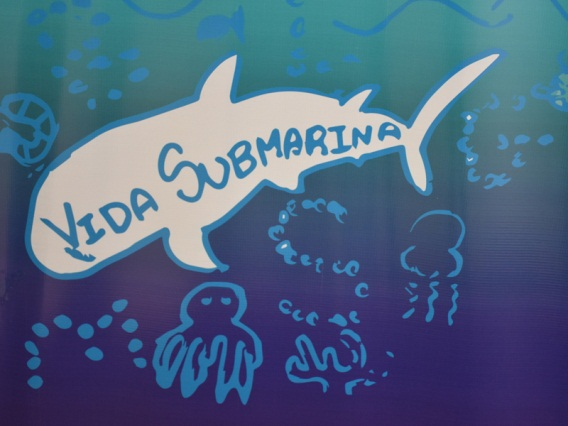 VIDA SUBMARINA